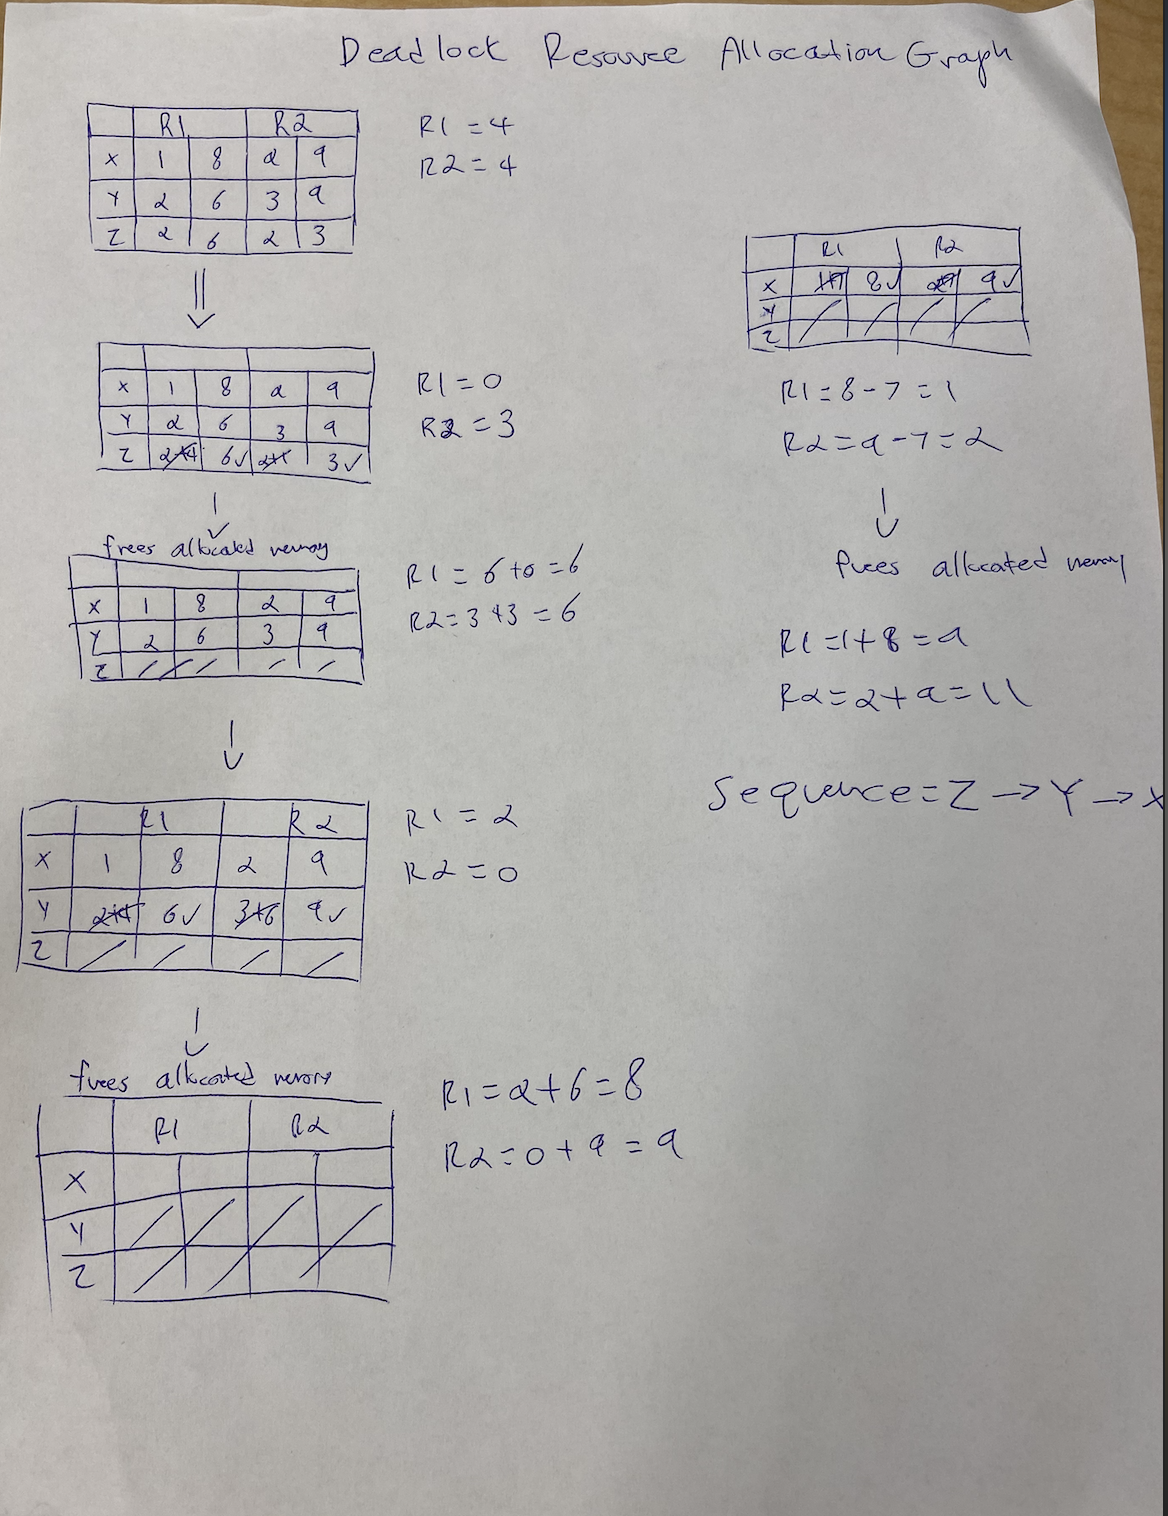 Deadlock Resource Allocation Graph
R1 R2
X 1 8 2 9
Y 2 6 3 9
Z 2 6 2 3
R1 = 4
R2 = 4
X 1 8 2 9
Y 2 6 3 9
Z 2+4 6✓ 2+1 3✓
R1 = 0
R2 = 3
frees allocated memory
X 1 8 2 9
Y 2 6 3 9
Z
R1 = 6+0 = 6
R2 = 3+3 = 6
R1 R2
X 1 8 2 9
Y 2+4 6✓ 3+6 9✓
Z
R1 = 2
R2 = 0
frees allocated memory
R1 R2
X
Y
Z
R1 = 2+6 = 8
R2 = 0+9 = 9
R1 R2
X 1+7 8✓ 2+7 9✓
Y
Z
R1 = 8-7 = 1
R2 = 9-7 = 2
frees allocated memory
R1 = 1+8 = 9
R2 = 2+9 = 11
Sequence = Z → Y → X